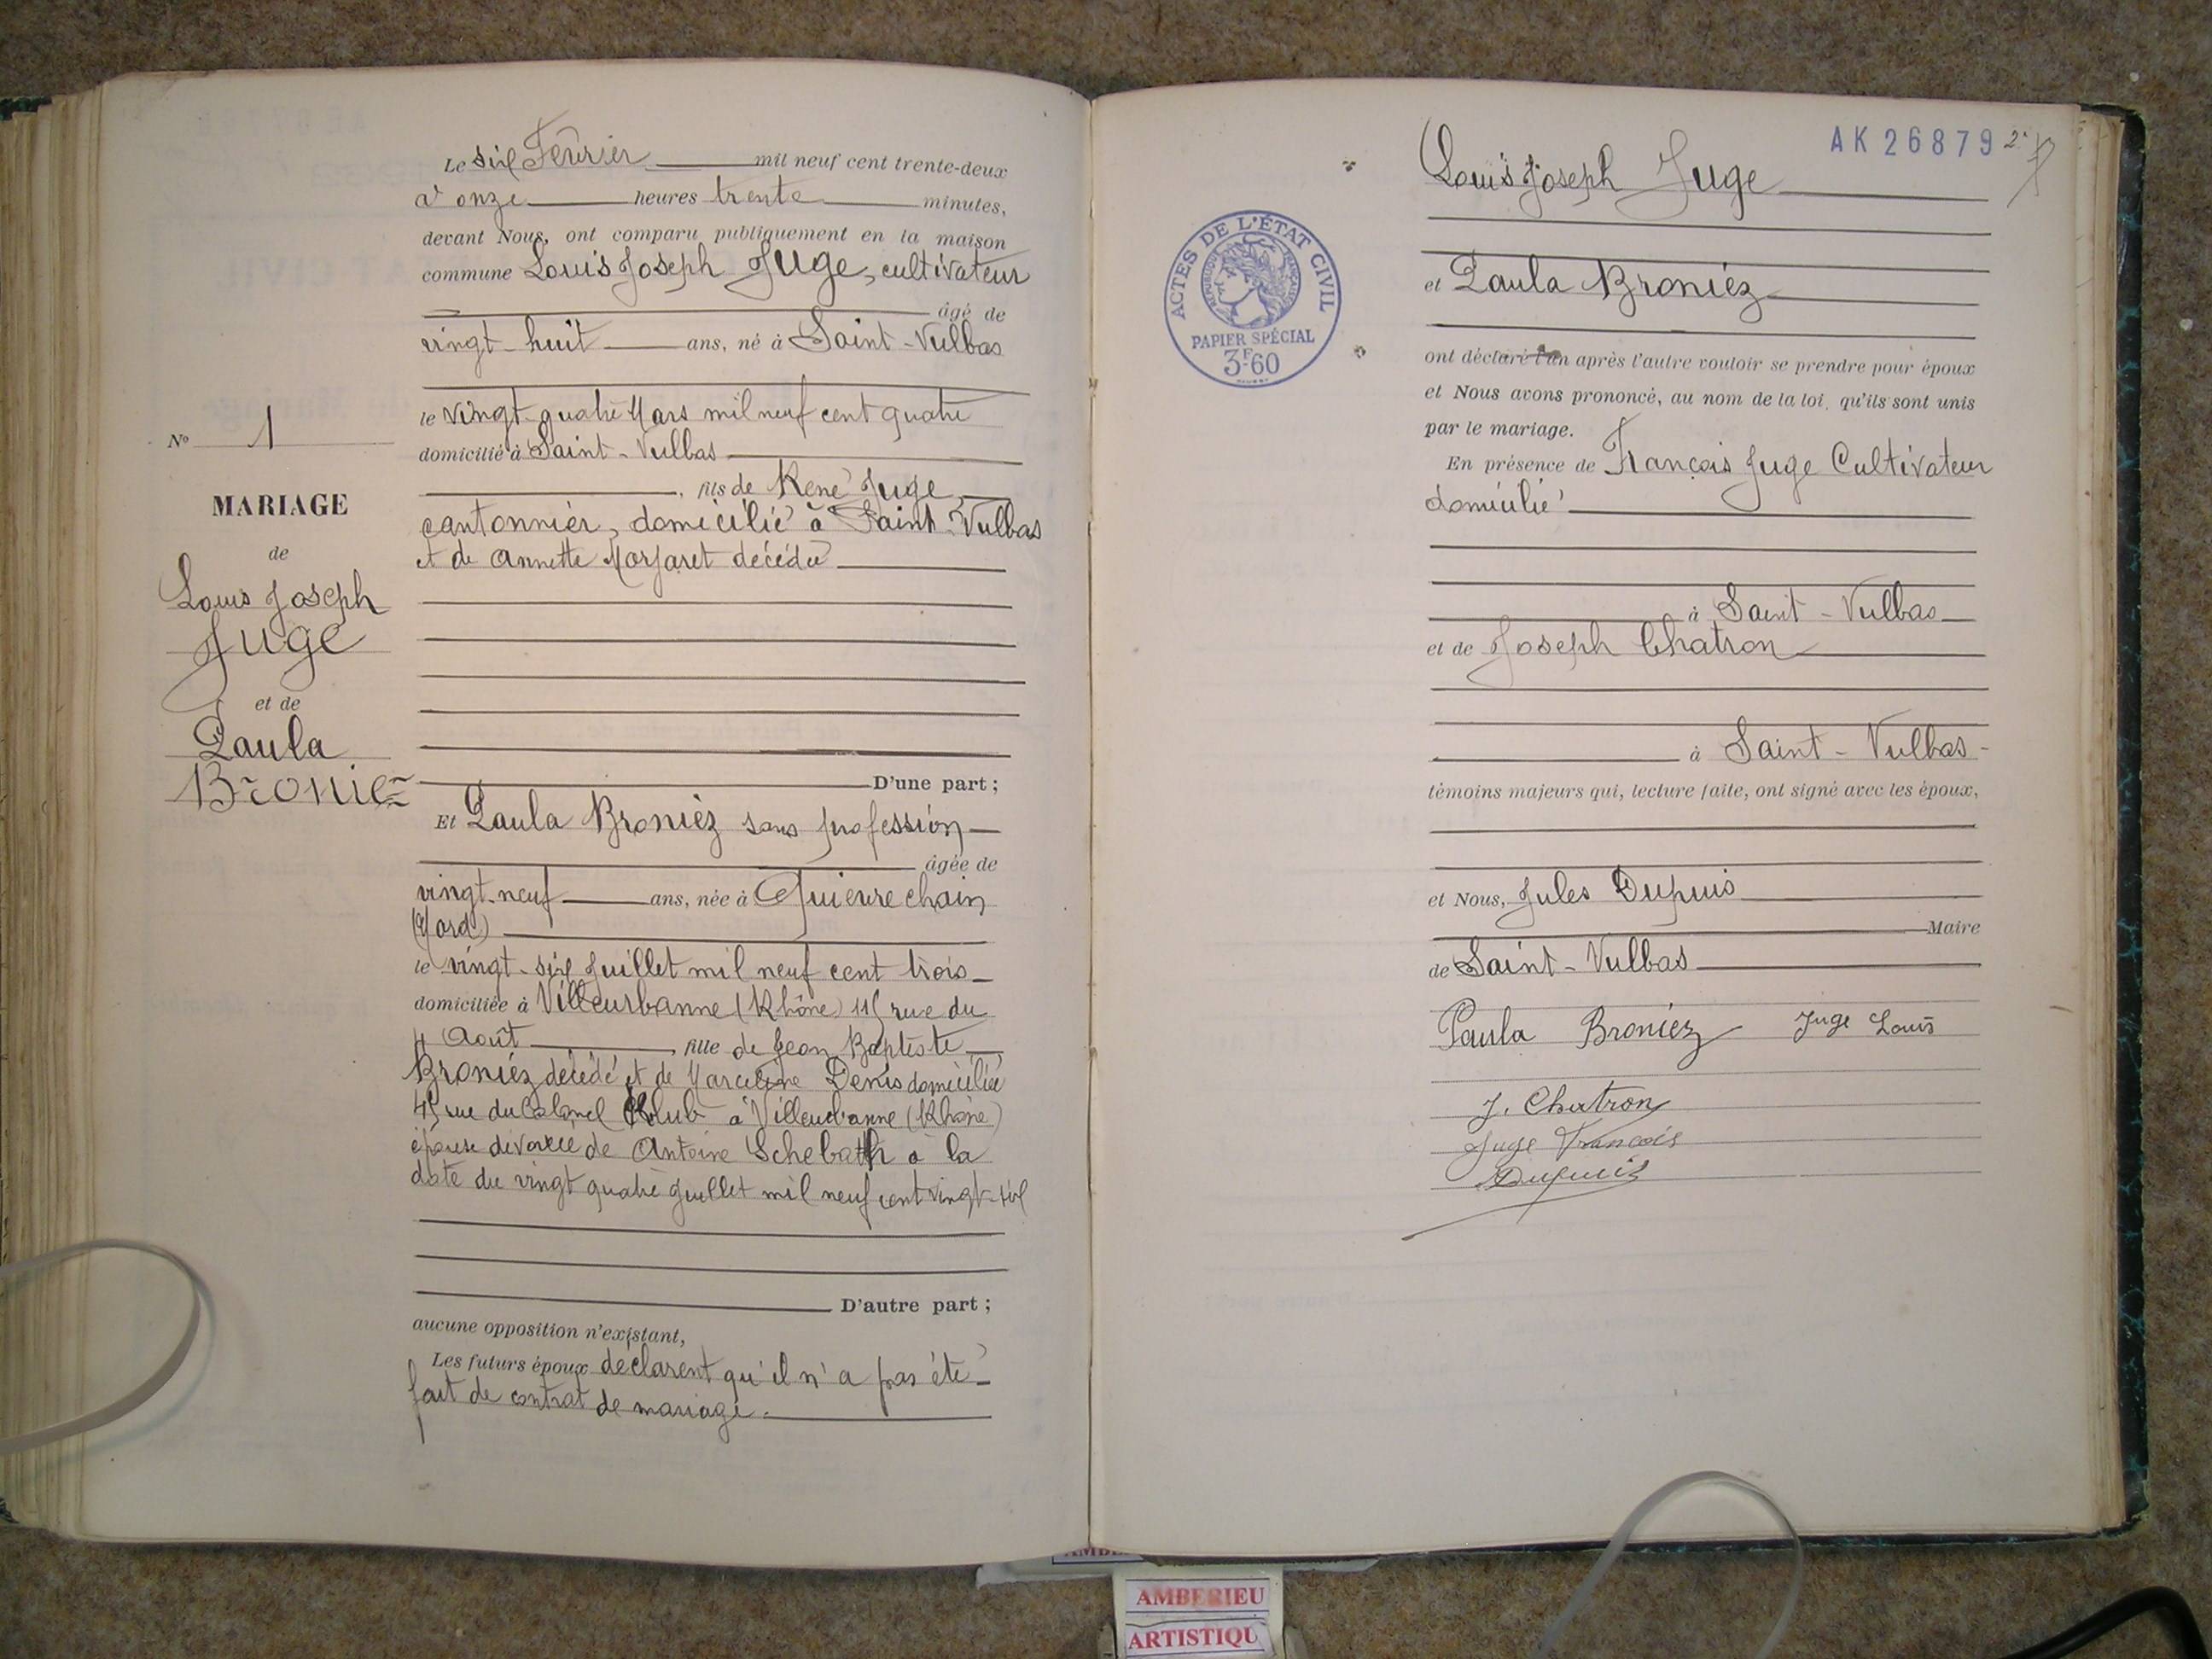 Le six Février mil neuf cent trente-deux
à onze heures trente minutes,
devant Nous, ont comparu publiquement en la maison
commune Louis Joseph Juge, cultivateur
âgé de
vingt-huit ans, né à Saint-Vulbas
le vingt-quatre Mars mil neuf cent quatre
domicilié à Saint-Vulbas
, fils de René Juge
cantonnier, domicilié à Saint-Vulbas
et de Annette décédée
D'une part ;
Et Paula Broniez sans profession
âgée de
vingt-neuf ans, née à Quievrechain
(Nord)
le vingt-six Juillet mil neuf cent trois
domiciliée à Villeurbanne (Rhône) rue du
4 Août , fille de Jean Baptiste
Broniez décédé et de Marceline Denis domiciliée
rue du Colonel Klub à Villeurbanne (Rhône)
épouse divorcée de Antoine Schebath à la
date du vingt quatre Juillet mil neuf cent vingt-six
D'autre part ;
aucune opposition n'existant,
Les futurs époux déclarent qu'il n'a pas été
fait de contrat de mariage.
N° 1
MARIAGE
de
Louis Joseph
Juge
et de
Paula
Broniez
AK 26879
Louis Joseph Juge
et Paula Broniez
ont déclaré l'un après l'autre vouloir se prendre pour époux
et Nous avons prononcé, au nom de la loi, qu'ils sont unis
par le mariage.
En présence de François Juge Cultivateur
domicilié
à Saint-Vulbas
et de Joseph Chatron
à Saint-Vulbas
témoins majeurs qui, lecture faite, ont signé avec les époux,
et Nous, Jules Dupuis
Maire
de Saint-Vulbas
Paula Broniez Juge Louis
J. Chatron
Juge François
Dupuis
ACTES DE L'ÉTAT CIVIL
RÉPUBLIQUE FRANÇAISE
PAPIER SPÉCIAL
3F60
AMBERIEU
ARTISTIQU